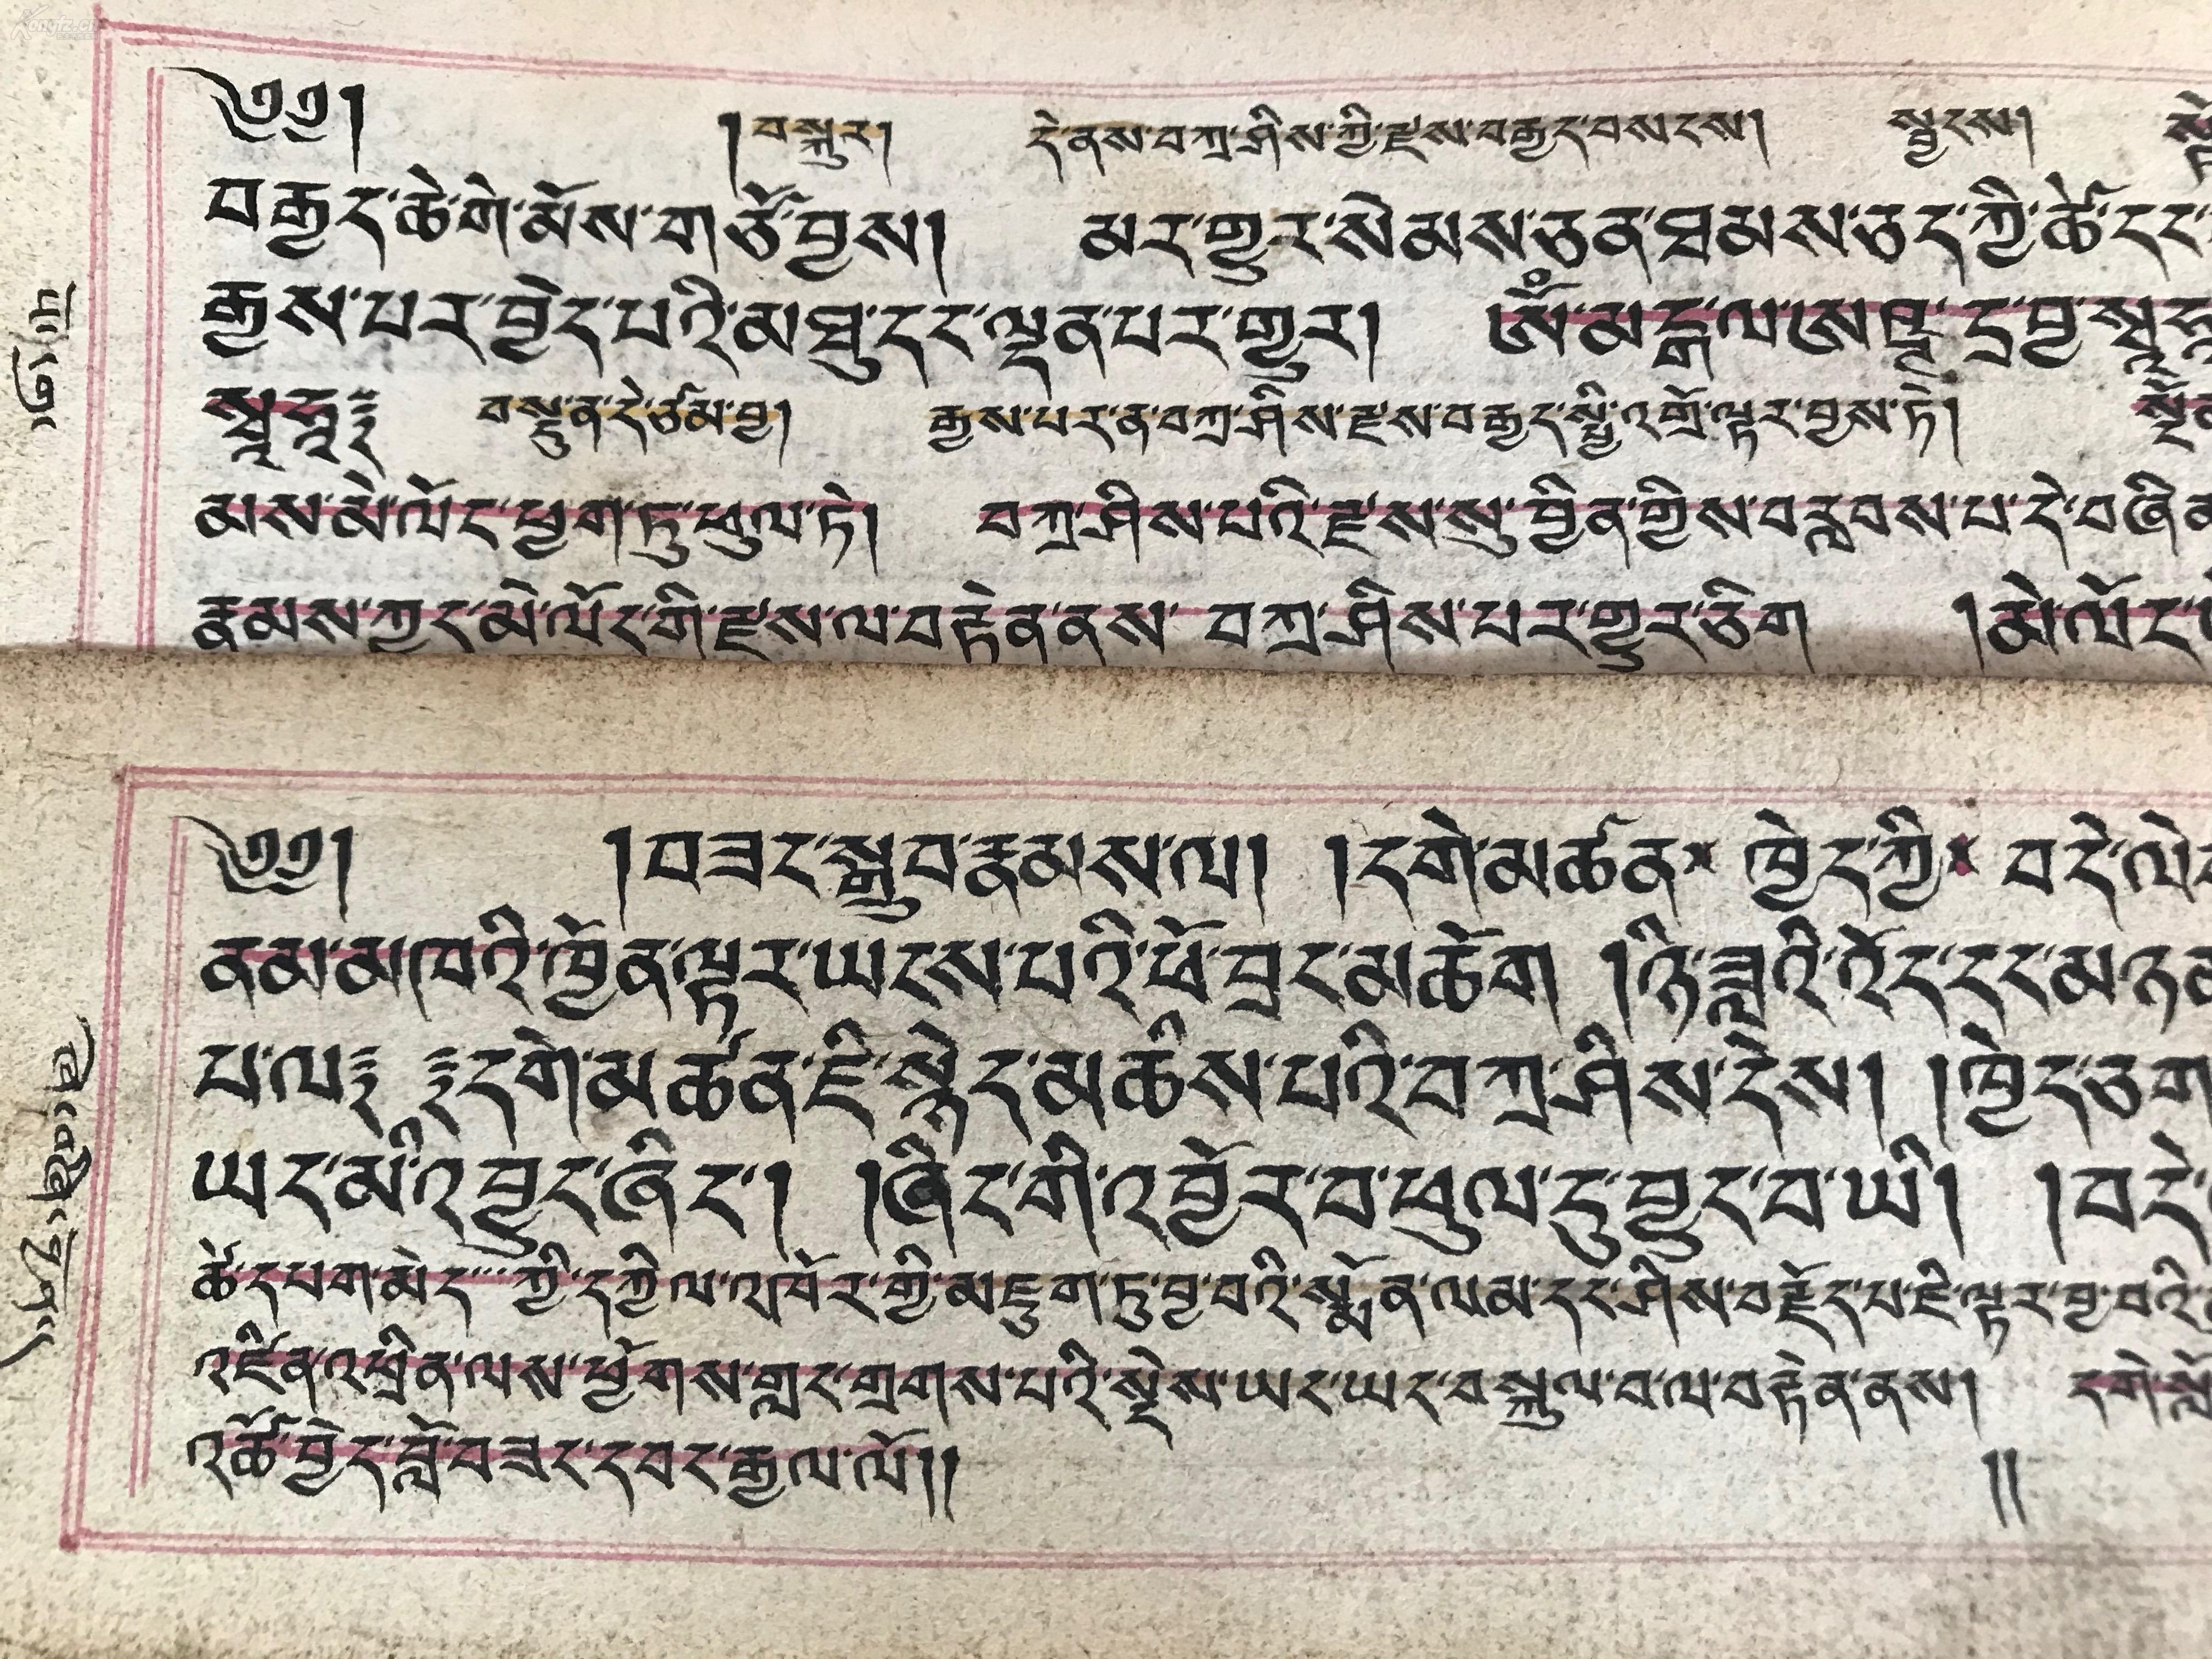 ༄༅། །བསྐུར། དེ་ནས་བཀྲ་ཤིས་ཀྱི་རྫས་བརྒྱད་བསངས། སྦྱངས།
བརྒྱད་ཆེ་གེ་མོས་གཙོ་བྱས། མར་གྱུར་སེམས་ཅན་ཐམས་ཅད་ཀྱི་ཚེ་དང་
རྒྱས་པར་བྱེད་པའི་མཐུ་དང་ལྡན་པར་གྱུར། ཨོཾ་མངྒ་ལ་ཨ
བསྟུན་དེ་ཙམ་བྱ། རྒྱས་པར་ན་བཀྲ་ཤིས་རྫས་བརྒྱད་སྤྱི་འགྲོ་ལྟར་བྱས་ཏེ།
མས་མེ་ལོང་ཕྱག་ཏུ་ཕུལ་ཏེ། བཀྲ་ཤིས་པའི་རྫས་སུ་བྱིན་གྱིས་བརླབས་པ་དེ་བཞིན
རྣམས་ཀྱང་མེ་ལོང་གི་རྫས་ལ་བརྟེན་ནས་ བཀྲ་ཤིས་པར་གྱུར་ཅིག །མེ་ལོང་
༄༅། །བཟང་སྒྲུབ་རྣམས་ལ། །དགེ་མཚན་ ཁྱེད་ཀྱི་ བདེ་ལེ
ནམ་མཁའི་ཁྱོན་ལྟར་ཡངས་པའི་ཕོ་བྲང་མཆོག །ཉི་ཟླའི་འོད་དང་མཉམ
པ་ལ༔ ༔དགེ་མཚན་ཇི་སྙེད་མཆིས་པའི་བཀྲ་ཤིས་དེས། །ཁྱེད་ཅག
ཡང་མི་འབྱུང་ཞིང་། །ཞིང་གི་འབྱོར་བ་ཕུལ་དུ་བྱུང་བ་ཡི། །བདེ་
ཚེ་དཔག་མེད་ཀྱི་དཀྱིལ་འཁོར་གྱི་མཇུག་ཏུ་བྱ་བའི་སྨོན་ལམ་དང་ཤིས་བརྗོད་པ་ཇི་ལྟར་བྱ་བའི་
འཛིན་འཕྲིན་ལས་ཕྱོགས་གླང་གྲགས་པའི་སྡེས་ཡང་ཡང་བསྐུལ་བ་ལ་བརྟེན་ནས། དགེ་སློ
འཚོ་བྱེད་བློ་བཟང་དབང་རྒྱལ་ལོ།། །།